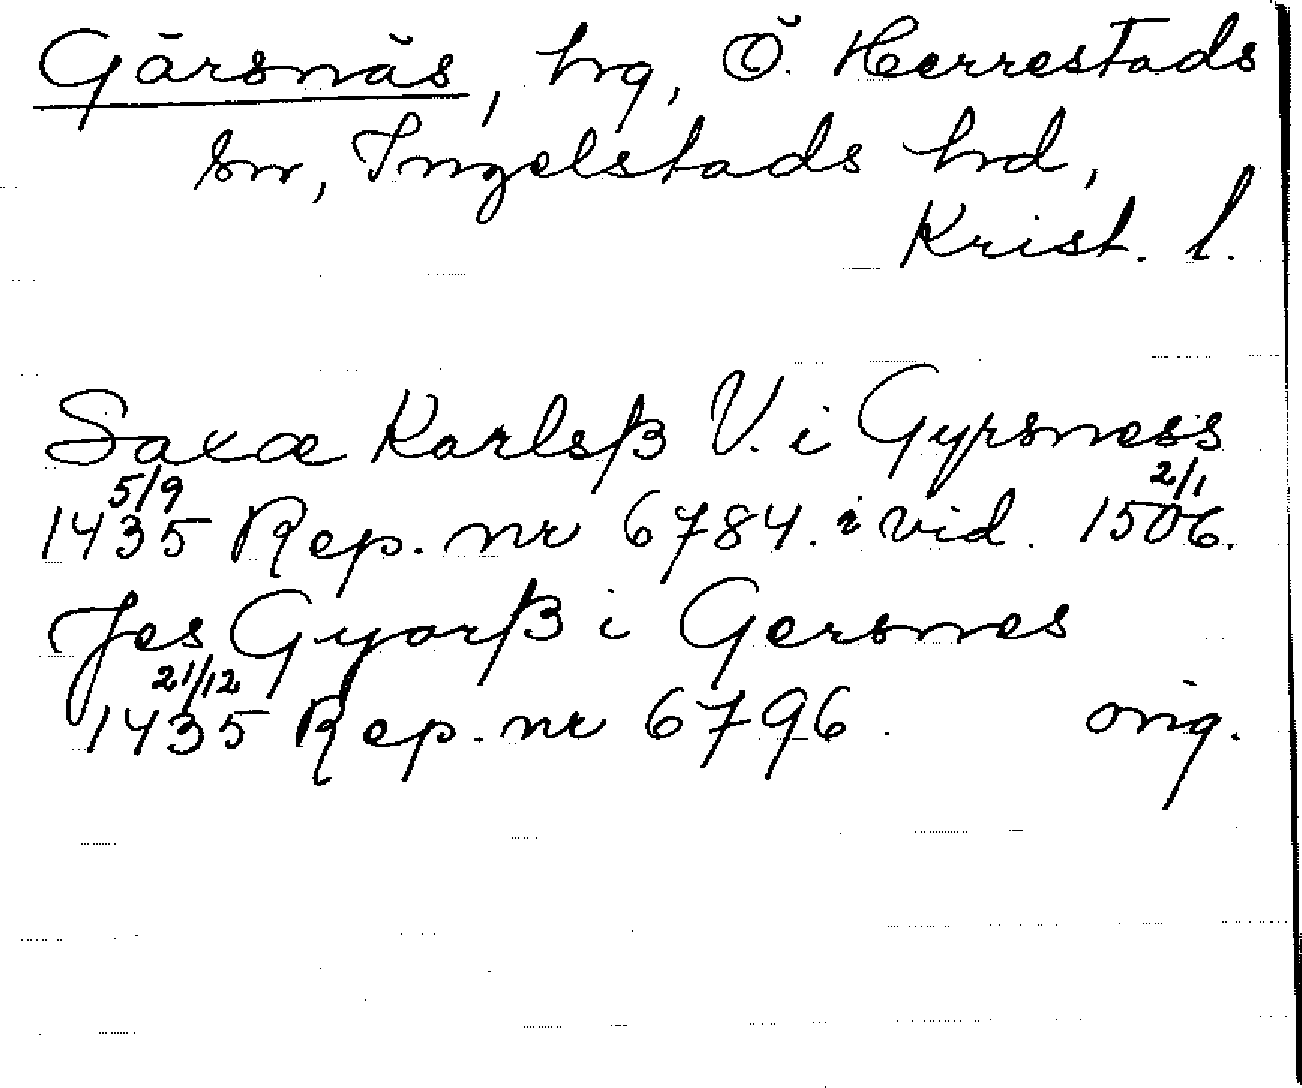 Gärsnäs, hrg, Ö. Herrestads
sn, Ingelstads hrd,
Krist. l.
Saxæ Karlsß V. i Gyrsness
5/9 2/1
1435 Rep. nr 6784. i vid. 1506.
Jes Gyorß i Gersnes
21/12
1435 Rep. nr 6796. orig.